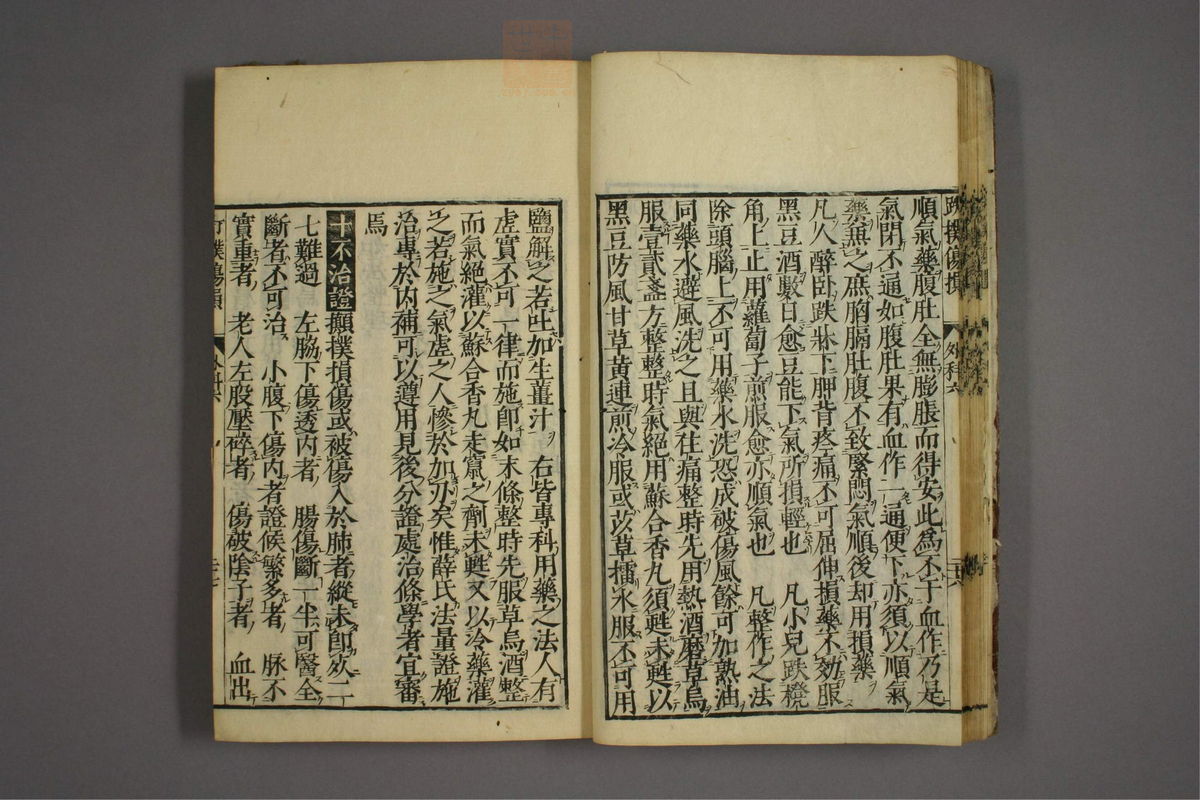 跌撲傷損 外科六
順氣藥腹肚全無膨脹而得安此為不干血作乃是
氣閉不通如腹肚果有血作一通便下亦須以順氣
藥兼之庶胸膈肚腹不致緊悶氣順後却用損藥
凡人醉卧跌牀下胛背疼痛不可屈伸損藥不効服
黑豆酒數日愈豆能下氣所損輕也 凡小兒跌櫈
角上止用蘿蔔子煎服愈亦順氣也 凡整作之法
除頭腦上不可用藥水洗恐成破傷風餘可加熟油
同藥水避風洗之且與住痛整時先用熱酒磨草烏
服壹貳盞方整整時氣絕用蘇合香丸須甦未甦以
黑豆防風甘草黃連煎冷服或亥草擂水服不可用
鹽解之若吐加生薑汁 右皆專科用藥之法人有
虛實不可一律而施即如末條整時先服草烏酒整
而氣絕灌以蘇合香丸走竄之劑未甦又以冷藥灌
之若施之氣虛之人慘於加刃矣惟薛氏法量證施
治專於內補可以遵用見後分證處治條學者宜審
焉
十不治證 顛撲損傷或被傷入於肺者縱未即死二
七難過 左脇下傷透內者 腸傷斷一半可醫全
斷者不可治 小腹下傷內者 證候繁多者 脉不
實重者 老人左股壓碎者 傷破陰子者 血出